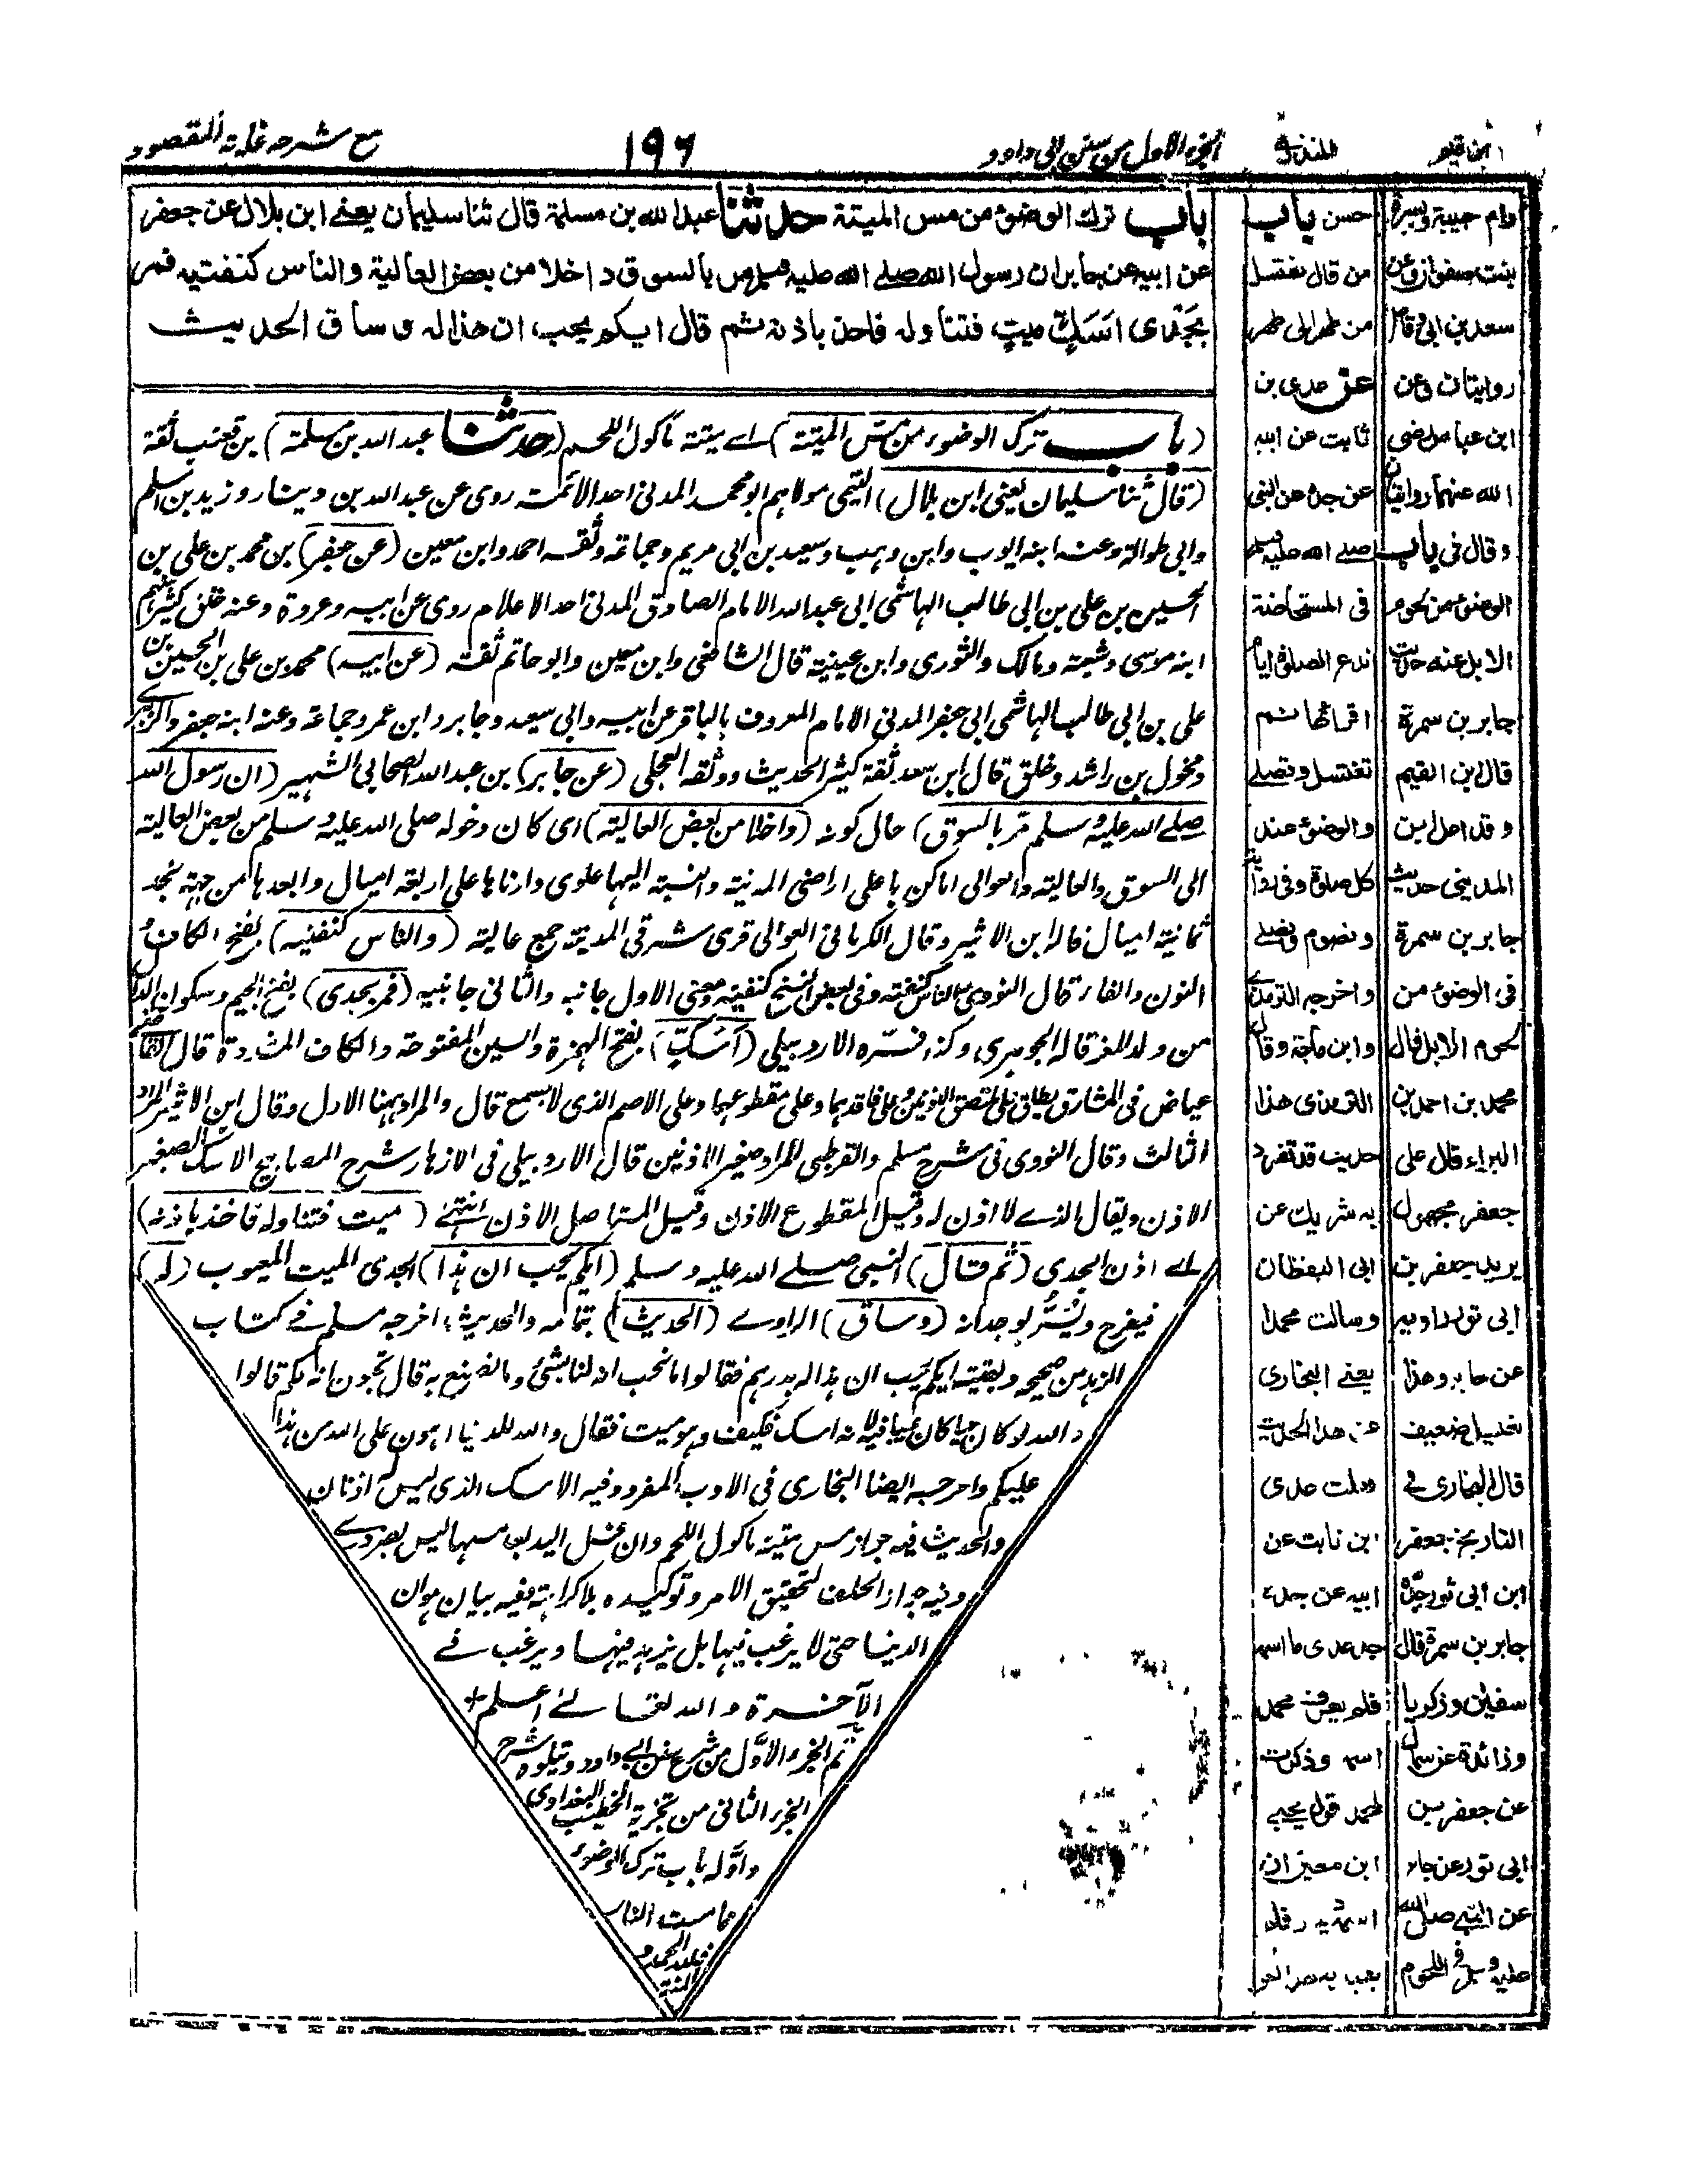 ابن قيم
المنذري
الجزء الاول من سنن ابی داود
١٩٦
مع شرحه غاية المقصود
باب ترك الوضوء من مس الميتة حدثنا عبد الله بن مسلمة قال ثنا سليمان يعنے ابن بلال عن جعفر
عن ابيه عن جابر ان رسول الله صلے الله عليه وسلم مر بالسوق داخلا من بعض العالية والناس كنفتيه فمر
بجَدْی اَسَكَّ ميتٍ فتناوله فاخذ باذنه ثم قال ايكم يحب ان هذا له وساق الحديث
(باب ترك الوضوء من مسّ الميتة) اے ميتة ماكول اللحم (حدثنا عبد الله بن مسلمة) بن قعنب ثقة
(قال ثنا سليمان يعنی ابن بلال) التيمی مولاهم ابو محمد المدنی احد الائمة روی عن عبد الله بن دينار وزيد بن اسلم
وابی طوالة وعنه ابنه ايوب وابن وهب وسعيد بن ابی مريم وجماعة وثقه احمد وابن معين (عن جعفر) بن محمد بن علی بن
الحسين بن علی بن ابی طالب الهاشمی ابی عبد الله الامام الصادق المدنی احد الاعلام روی عن ابيه وعروة وعنه خلق كثير منهم
ابنه موسی وشعبة ومالك والثوری وابن عيينة قال الشافعی وابن معين وابو حاتم ثقة (عن ابيه) محمد بن علی بن الحسين بن
علی بن ابی طالب الهاشمی ابی جعفر المدنی الامام المعروف بالباقر عن ابيه وابی سعيد وجابر وابن عمر وجماعة وعنه ابنه جعفر والزهرے
ومخول بن راشد وخلق قال ابن سعد ثقة كثير الحديث ووثقه العجلی (عن جابر) بن عبد الله الصحابی الشهير (ان رسول الله
صلے الله عليه وسلم مر بالسوق) حال كونه (داخلا من بعض العالية) ای كان دخوله صلی الله عليه وسلم من بعض العالية
الی السوق والعالية والعوالی اماكن باعلی اراضی المدينة والنسبة اليها علوی وادناها علی اربعة اميال وابعدها من جهة نجد
ثمانية اميال قاله ابن الاثير وقال الكرمانی العوالی قری شرقی المدينة جمع عالية (والناس كنفتيه) بفتح الكاف و
النون والفاء قال النووی والناس كنفته وفی بعض النسخ كنفتيه ومعنی الاول جانبه والثانی جانبيه (فمر بجدی) بفتح الجيم وسكون الدال
من ولد المعز قاله الجوهری وكذا فسّره الاردبيلی (اَسَكَّ) بفتح الهمزة والسين المفتوحة والكاف المشددة قال القاضی
عياض فی المشارق يطلق علی ملتصق الاذنين وعلی فاقدهما وعلی مقطوعهما وعلی الاصم الذی لا يسمع قال والمراد ههنا الاول وقال ابن الاثير المراد
الثالث وقال النووی فی شرح مسلم والقرطبی المراد صغير الاذنين قال الاردبيلی فی الازهار شرح المصابيح الاسك الصغير
الاذن ويقال الذے لا اذن له وقيل المقطوع الاذن وقيل المستاصل الاذن انتهے (ميت فتناوله فاخذ باذنه)
اے اذن الجدی (ثم قال) النبی صلے الله عليه وسلم (ايكم يحب ان هذا) الجدی الميت المعيوب (له)
فيفرح ويُسَرُّ لوجدانه (وساق) الراوے (الحديث) بتمامه والحديث اخرجه مسلم فے كتاب
الزهد من صحيحه وبقيته ايكم يحب ان هذا له بدرهم فقالوا ما نحب انه لنا بشئ وما نصنع به قال تحبون انه لكم قالوا
والله لو كان حيا كان عيبا فيه لانه اسك فكيف وهو ميت فقال والله للدنيا اهون علی الله من هذا
عليكم واخرجه ايضا البخاری فی الادب المفرد وفيه الاسك الذی ليس له اذنان
والحديث فيه جواز مس ميتة ماكول اللحم وان غسل اليد بعد مسها ليس بضرورے
وفيه جواز الحلف لتحقيق الامر وتوكيده بلا كراهة وفيه بيان هوان
الدنيا حتی لا يرغب فيها بل يزهد فيها ويرغب فے
الآخرة والله تعالے اعلم
تم الجزء الاوّل من شرح سنن ابی داود ويتلوه شرح
الجزء الثانی من تجزية الخطيب البغدادی
واوّله باب ترك الوضوء
مما مست النار
فلله الحمد و
المنة
حسن باب
من قال تغتسل
من طهر الی طهر
عن عدی بن
ثابت عن ابيه
عن جده عن النبی
صلے الله عليه وسلم
فی المستحاضة
تدع الصلوة ايام
اقرائها ثم
تغتسل وتصلے
والوضوء عند
كل صلوة وفی رواية
وتصوم وتصلے
واخرجه الترمذے
وابن ماجة وقال
الترمذی هذا
حديث قد تفرد
به شريك عن
ابی اليقظان
وسالت محمدا
يعنے البخاری
عن هذا الحديث
فقلت عدی
ابن ثابت عن
ابيه عن جده
جد عدی ما اسمه
فلم يعرف محمد
اسمه وذكرت
لمحمد قول يحيے
ابن معين ان
اسمه دينار فلم
وام حبيبة وبسرة
بنت صفوان وعن
سعد بن ابی وقاص
روايتان وعن
ابن عباس رضی
الله عنهما روايتان
وقال فی باب
الوضوء من لحوم
الابل عند حديث
جابر بن سمرة
قال ابن القيم
وقد اعل ابن
المدينی حديث
جابر بن سمرة
فی الوضوء من
لحوم الابل قال
محمد بن احمد بن
البراء قال علی
جعفر مجهول
يريد جعفر بن
ابی ثور راويه
عن جابر وهذا
تعليل ضعيف
قال البخاری فے
التاريخ جعفر
ابن ابی ثور جدّه
جابر بن سمرة قال
سفيان وزكريا
وزائدة عن سماك
عن جعفر بن
ابی ثور عن جابر
عن النبے صلی الله
عليه وسلم فی اللحوم